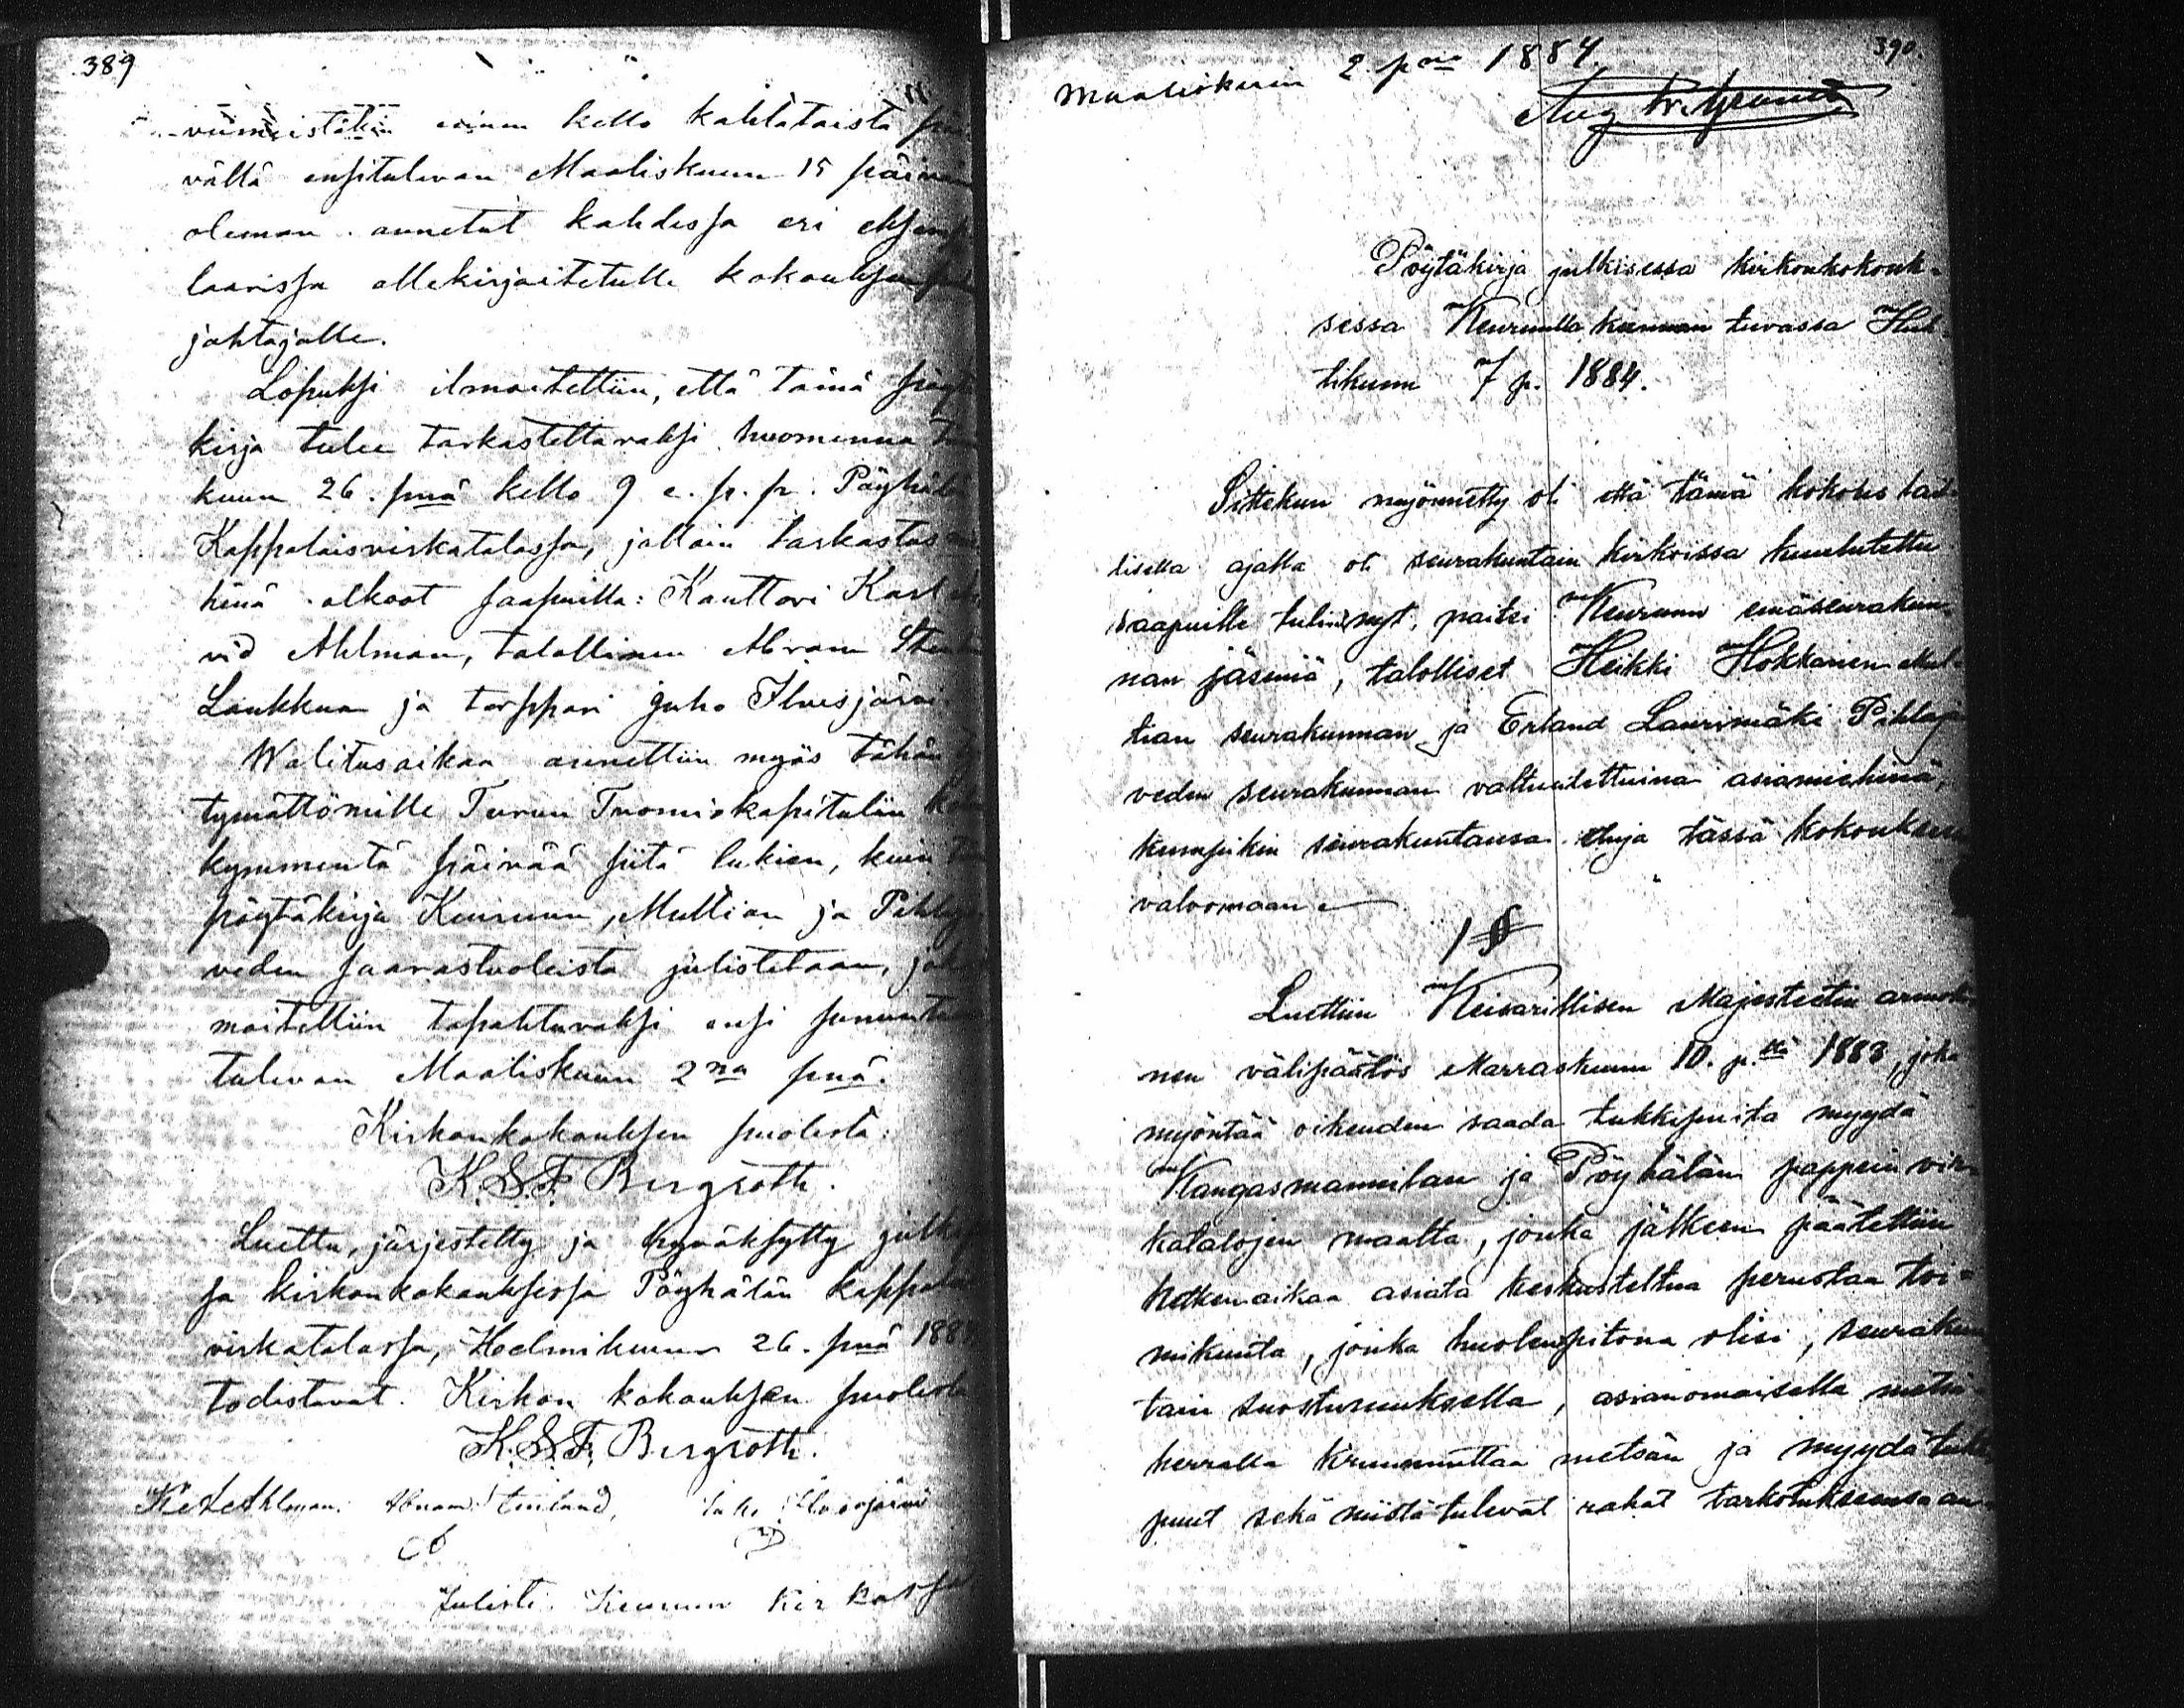 389
viimeistään ennen kello kahtatoista
vällä ensitulevan Maaliskuun 15 päivän
oleman annetut kahdessa eri eksemp
laarissa allekirjoitetulle kokouksen
johtajalle.
Lopuksi ilmoitettiin, että tämä pöytä
kirja tulee tarkasteltavaksi huomenna
kuun 26. pnä kello 9 e. p. p. Pöyhölän
Kappalaisvirkatalossa, jolloin tarkastus
hinä olkoot saapuilla: Kanttori Karl
vid Ahlman, talollinen Abram
Laukkua ja torppari Juho Ilvesjärvi
Walitusaikaa annettiin myös tähän
tymättömille Turun Tuomiokapituliin
kymmentä päivää siitä lukien, kuin
pöytäkirja Keuruun, Multian ja Pihlaja
veden saarastuoleista julistetaan, jo
moitettiin tapahtuvaksi ensi sunnunta
tulevan Maaliskuun 2na pnä.
Kirkonkokouksen puolesta:
K. S. F. Bergroth.
Luettu, järjestetty ja hyväksytty julki
sa kirkonkokouksessa Pöyhölän kappala
virkatalossa, Helmikuun 26. pnä 188
todistavat. Kirkon kokouksen puolesta
K. S. F. Bergroth.
Ahlman. Abram Juho Ilvesjärvi
Julisti Keuruun kirkossa
390.
Maaliskuun 2. pnä 1884.
Aug. Fr.
Pöytäkirja julkisessa kirkonkokouk-
sessa Keuruulla kunnan tuvassa Huh
tikuun 7 p. 1884.
Sittekun myönnetty oli että tämä kokous lail-
lisella ajalla oli seurakuntain kirkoissa kuulutettu
saapuille tulivat nyt, paitsi Keuruun emäseurakun-
nan jäseniä, talolliset Heikki Hokkanen Mul-
tian seurakunnan ja Erland Laurimäki Pihlaja
veden seurakunnan valtuutettuina asiamiehinä,
kumpikin seurakuntansa etuja tässä kokouksessa
valvomaan.
1 §
Luettiin Keisarillisen Majesteetin armolli-
nen välipäätös Marraskuun 10. p:ltä 1883, joka
myöntää oikeuden saada tukkipuita myydä
Kangasmannilan ja Pöyhölän pappein vir-
katalojen maalta, jonka jälkeen päätettiin
hetken aikaa asiata keskusteltua perustaa toi-
mikunta, jonka huolenpitona olisi, seurakun
tain suostumuksella, asianomaisella metsä-
herralla kruunuttaa metsän ja myydä tukki
puut sekä niistä tulevat rahat tarkotukseensa an-